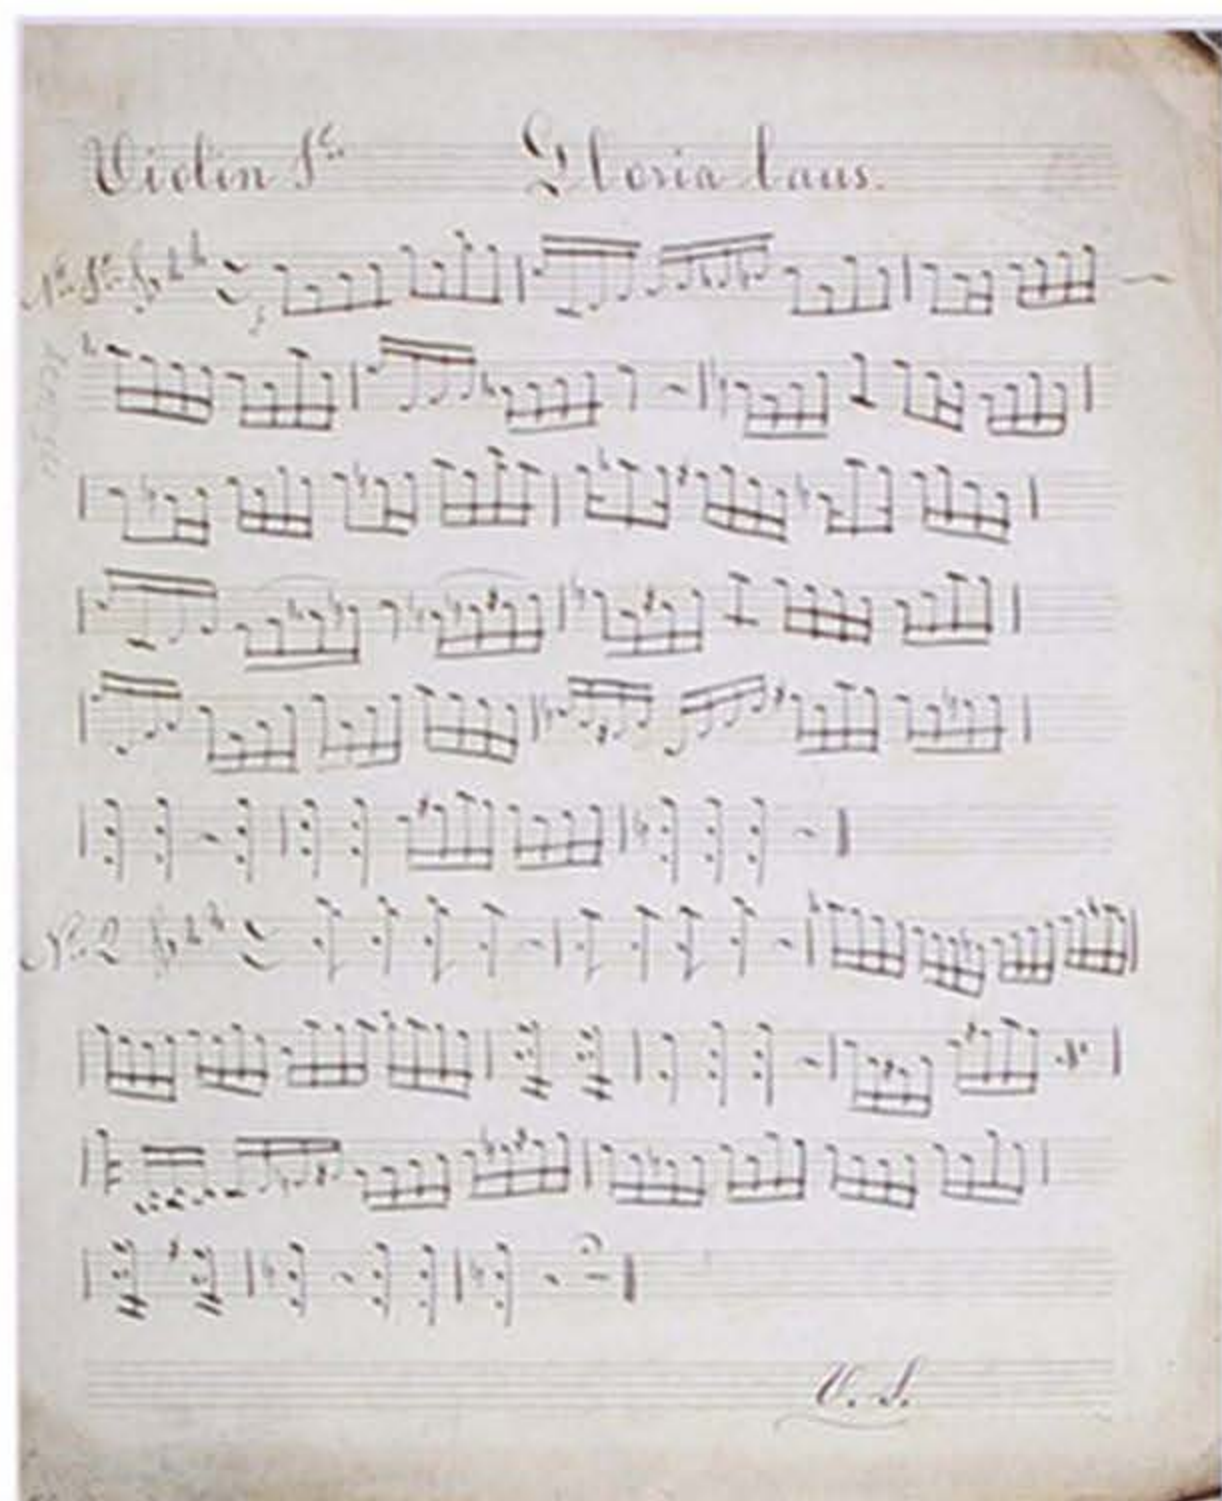 Violin 1º Gloria laus.
Nº 1º
Nº 2
V. S.